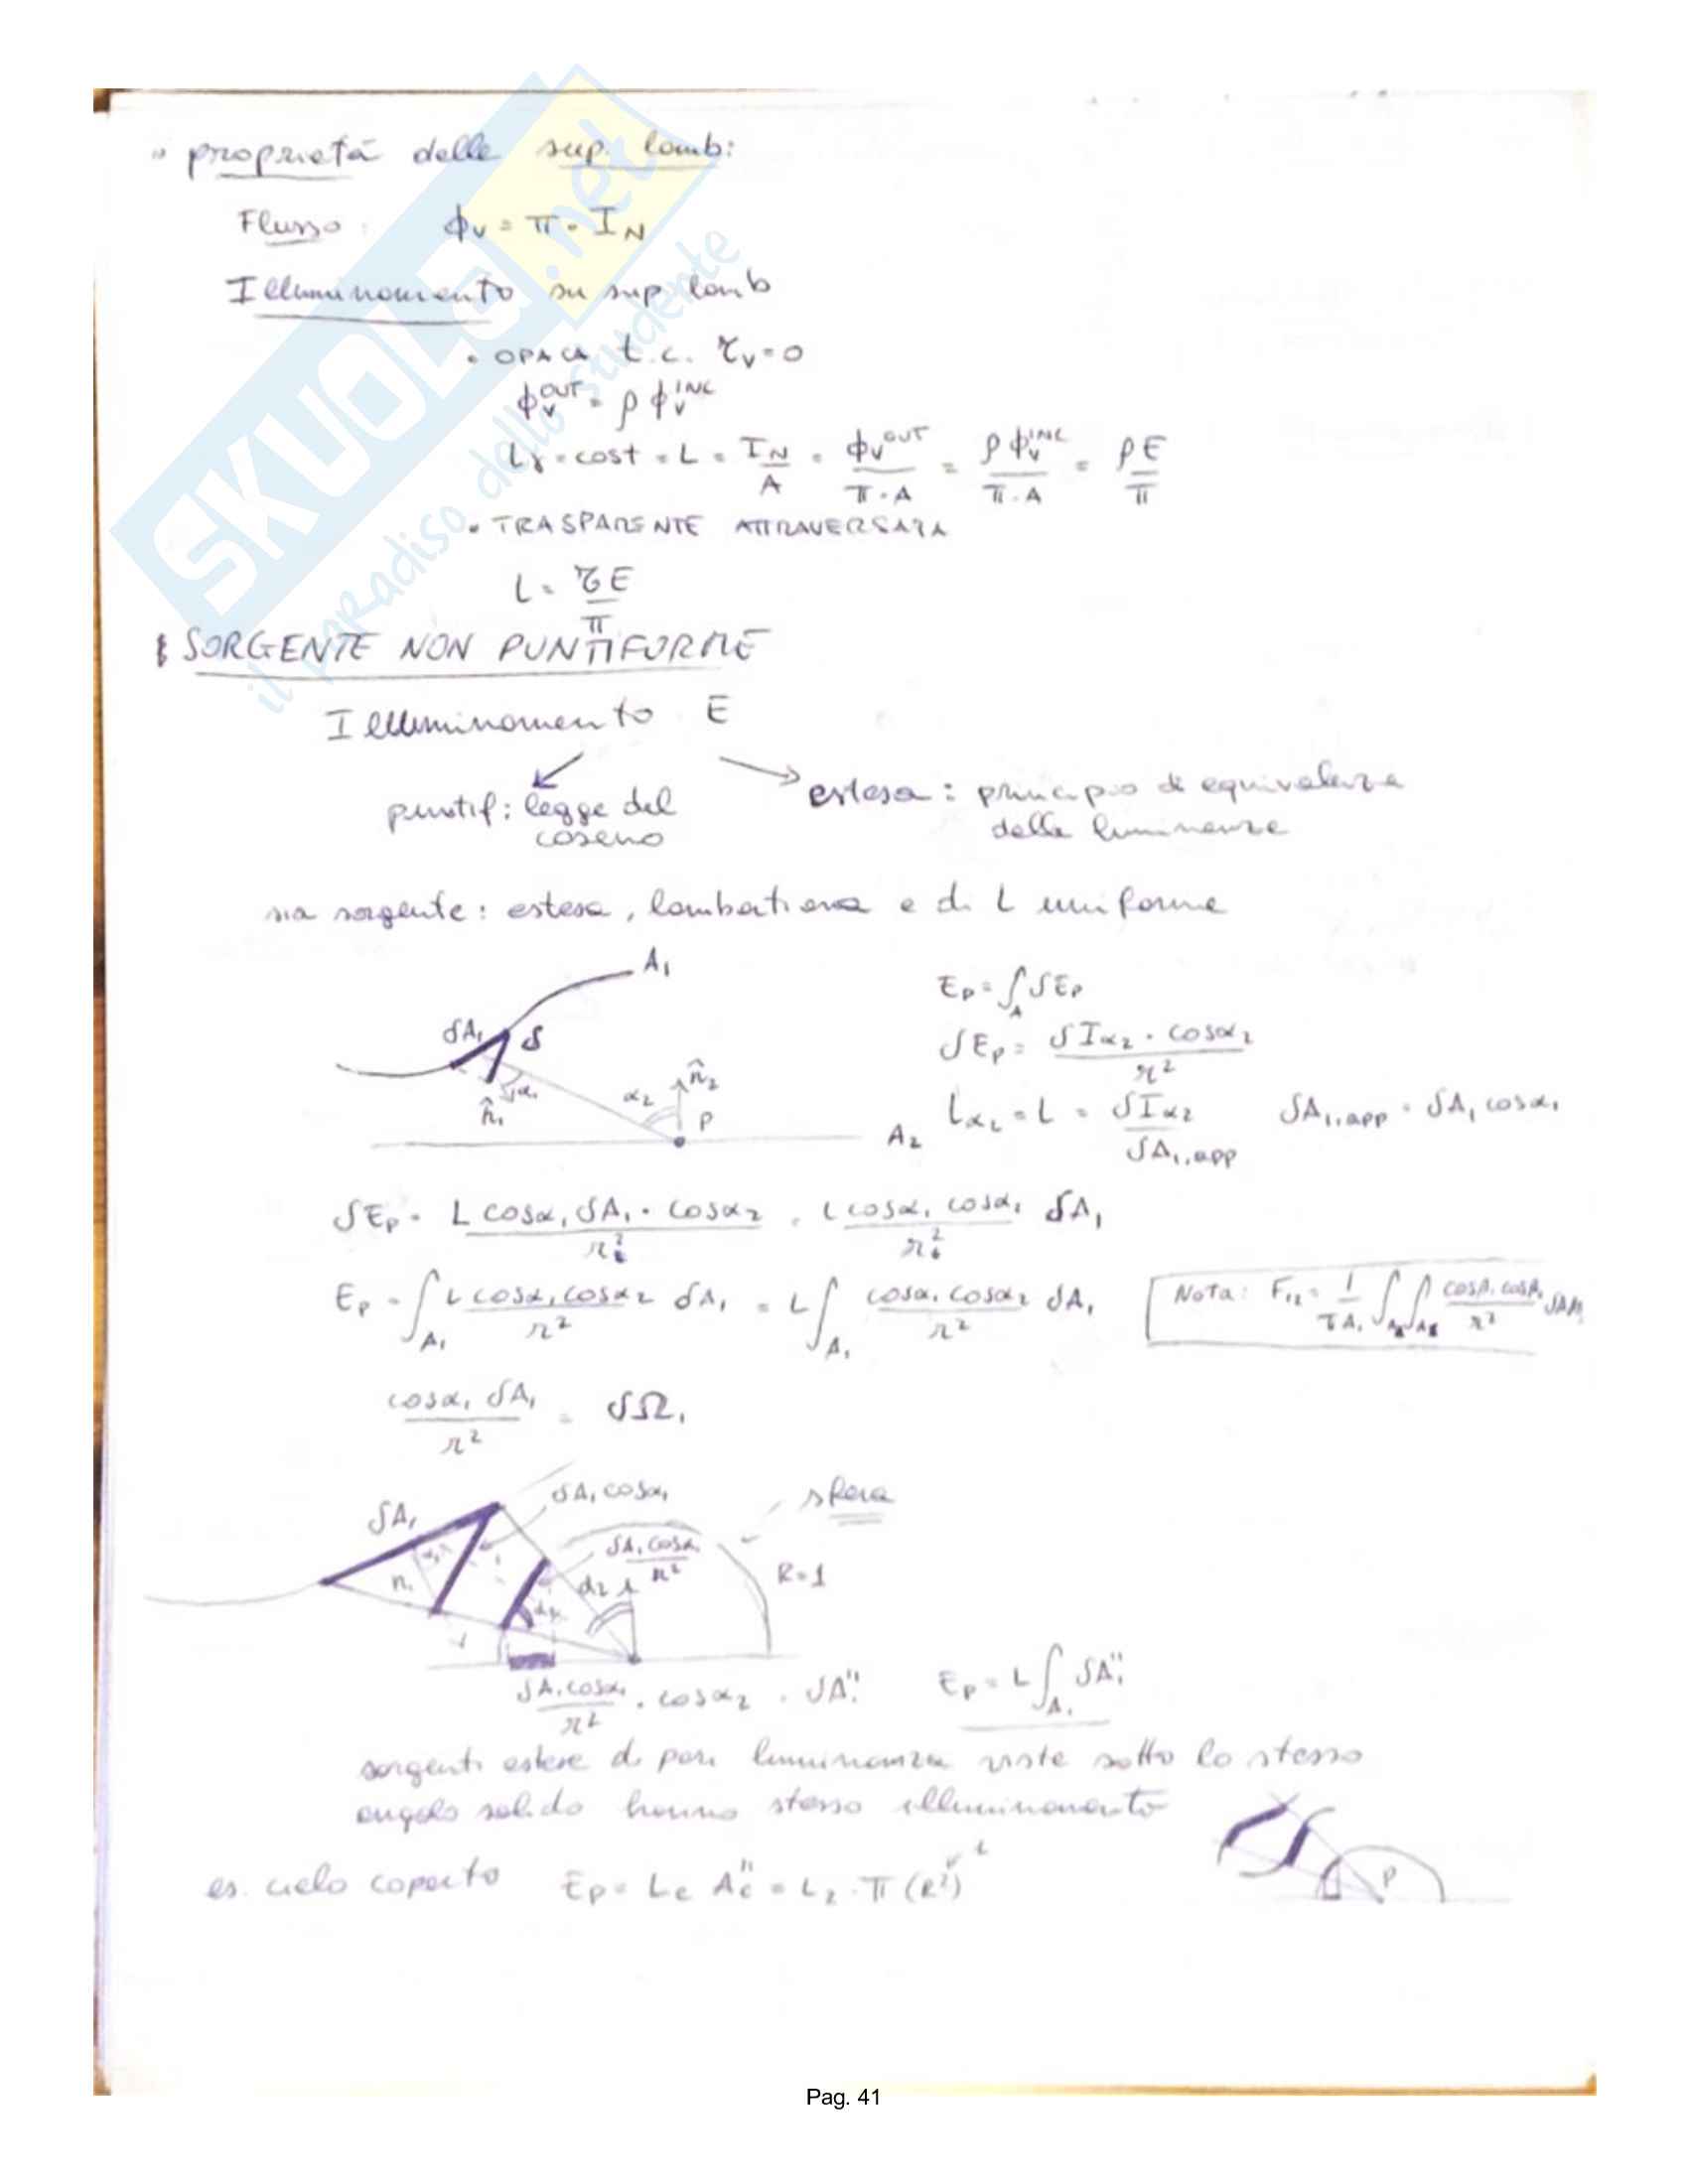 proprietà delle sup. lamb:
Flusso: ϕv = π · IN
Illuminamento su sup lamb
• OPACA t.c. τv = 0
ϕv^OUT = ρ ϕv^INC
Lγ = cost = L = IN/A = ϕv^OUT/(π · A) = ρ ϕv^INC/(π · A) = ρE/π
• TRASPARENTE ATTRAVERSATA
L = τE/π
SORGENTE NON PUNTIFORME
Illuminamento E
puntif: legge del coseno
estesa: principio di equivalenza delle luminanze
sia sorgente: estesa, lambertiana e di L uniforme
A1
δA1 S
n̂1 α1 α2 n̂2 P
A2
Ep = ∫A δEp
δEp = δIα2 · cosα2 / r²
Lα2 = L = δIα2 / δA1,app δA1,app = δA1 cosα1
δEp = L cosα1 δA1 · cosα2 / r² = L cosα1 cosα2 / r² δA1
Ep = ∫A1 L cosα1 cosα2 / r² δA1 = L ∫A1 cosα1 cosα2 / r² δA1
Nota: F12 = 1/(πA1) ∫∫ cosβ1 cosβ2 / r²
cosα1 δA1 / r² = δΩ1
δA1 δA1 cosα1 sfera
δA1 cosα1 / r² R=1
n1 α2
δA1 cosα1 / r² · cosα2 = δA1'' Ep = L ∫A1 δA1''
sorgenti estese di pari luminanza viste sotto lo stesso
angolo solido hanno stesso illuminamento
P
es. cielo coperto Ep = Lc Ac'' = Lz · π (R²)
SKUOLA.net
il paradiso dello studente
Pag. 41